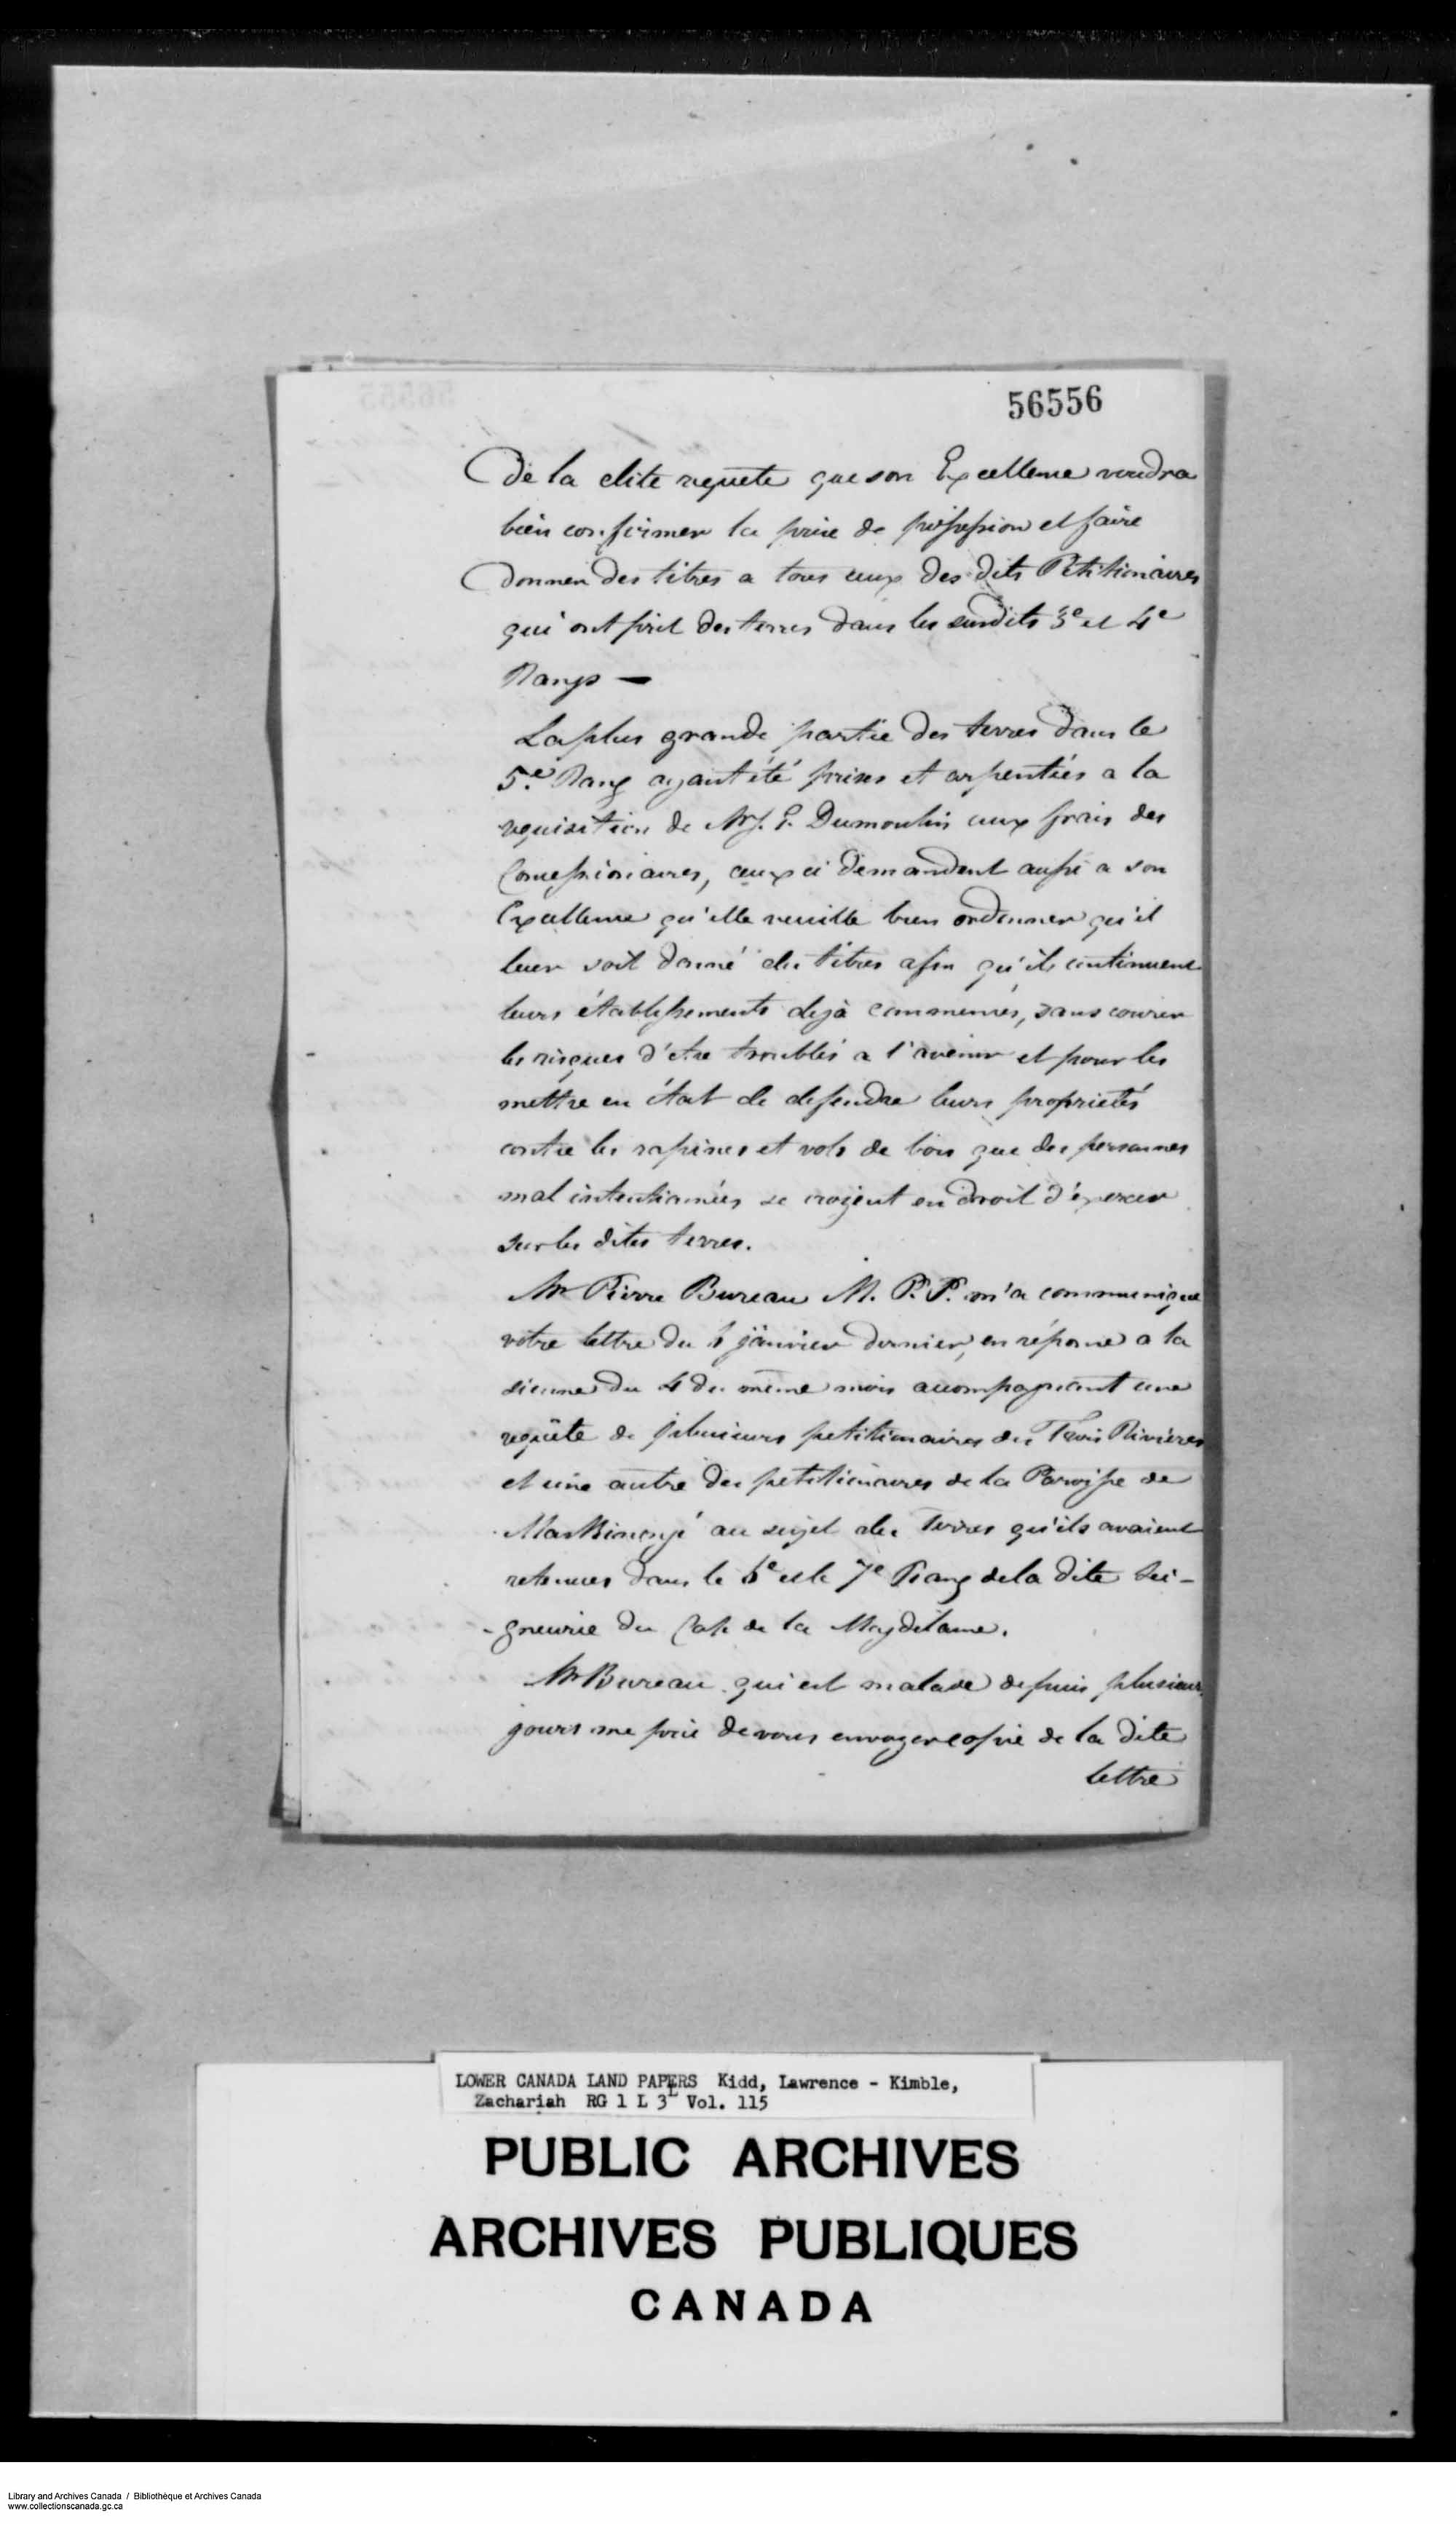 56556
De la dite requete que son Excellence voudra
bien confirmer la prise de possession et faire
Donner des titres a tous ceux des dits Petitionaires
qui ont prit des terres dans les susdits 3e et 4e
Rangs —
La plus grande partie des terres dans le
5e. Rang ayant été prises et arpentées a la
requisition de Mr J. E. Dumoulin aux frais des
Concessionaires, ceux ci demandent aussi a son
Excellence qu'elle veuille bien ordonner qu'il
leur soit donné des titres afin qu'ils continuent
leurs établissements dejà commencés, sans courir
les risques d'etre troublés a l'avenir et pour les
mettre en état de defendre leurs proprietés
contre les rapines et vols de bois que des personnes
mal intentionnées se croyent en droit d'éxercer
sur les dites terres.
Mr Pierre Bureau M. P. P. m'a communiqué
votre lettre du janvier dernier, en réponse a la
sienne du 4 du même mois accompagnant une
requête de plusieurs petitionaires des Trois Rivières
et une autre des petitionaires de la Paroisse de
Maskinongé au sujet des terres qu'ils avaient
retenues dans le 6e et le 7e Rang de la dite Sei-
-gneurie du Cap de la Magdelaine.
Mr Bureau qui est malade depuis plusieurs
jours me prie de vous envoyer copie de la dite
lettre
LOWER CANADA LAND PAPERS Kidd, Lawrence - Kimble,
Zachariah RG 1 L 3L Vol. 115
PUBLIC ARCHIVES
ARCHIVES PUBLIQUES
CANADA
Library and Archives Canada / Bibliothèque et Archives Canada
www.collectionscanada.gc.ca